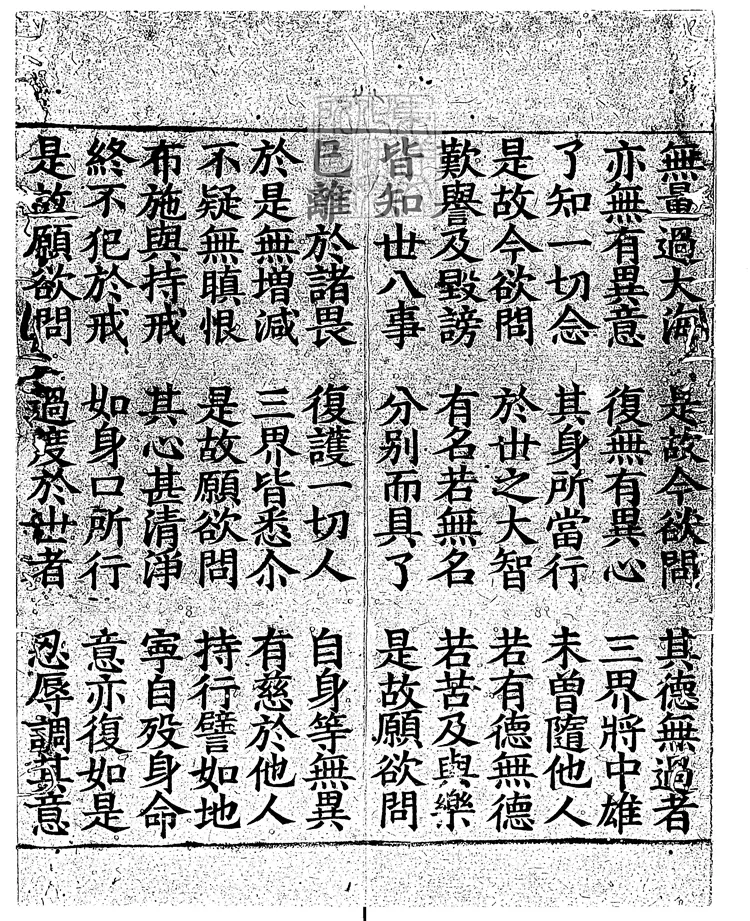 無量過大海 是故今欲問 其德無過者
亦無有異意 復無有異心 三界將中雄
了知一切念 其身所當行 未曽隨他人
是故今欲問 於丗之大智 若有德無德
歎譽及毀謗 有名若無名 若苦及與樂
皆知丗八事 分别而具了 是故願欲問
已離於諸畏 復護一切人 自身等無異
於是無增減 三界皆悉尒 有慈於他人
不疑無瞋恨 是故願欲問 持行譬如地
布施與持戒 其心甚清淨 寧自殁身命
終不犯於戒 如身口所行 意亦復如是
是故願欲問 過度於丗者 忍辱調其意